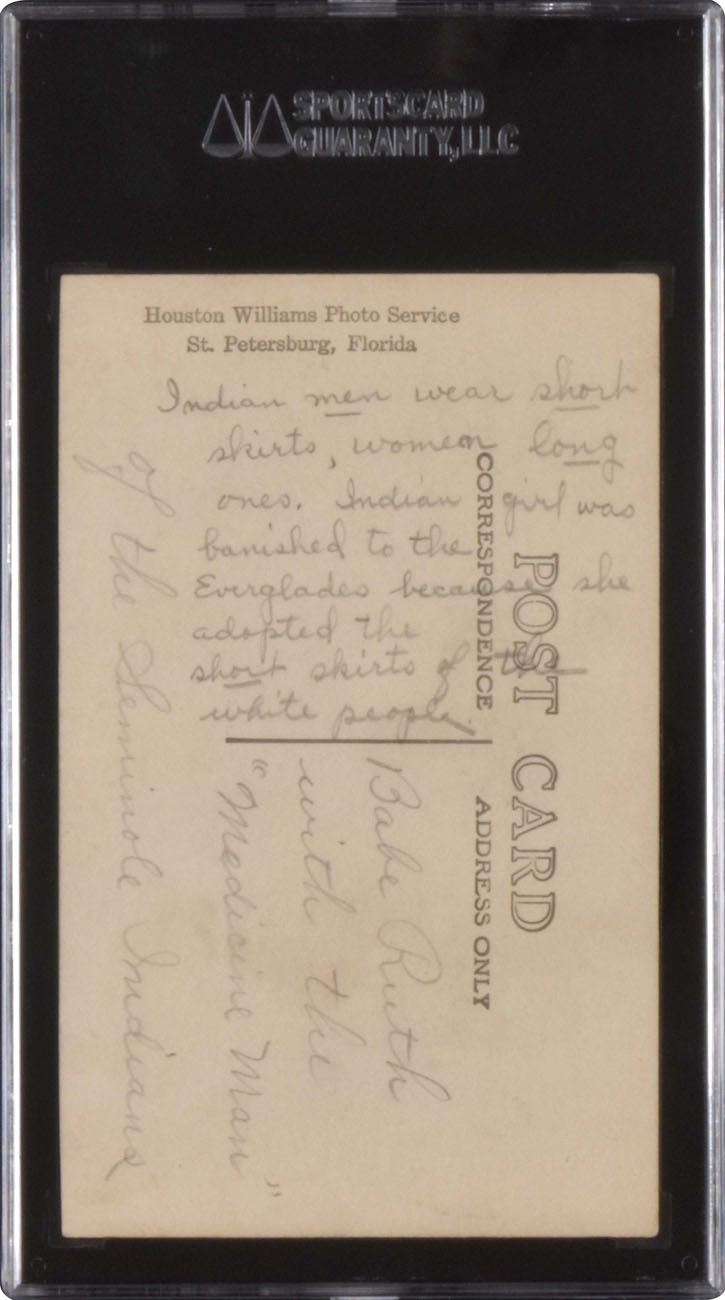 SPORTSCARD
GUARANTY, LLC
Houston Williams Photo Service
St. Petersburg, Florida
Indian men wear short
skirts, women long
ones. Indian girl was
banished to the
Everglades because she
adopted the
short skirts of the
white people.
POST CARD
CORRESPONDENCE
ADDRESS ONLY
Babe Ruth
with the
"Medicine Man"
of the Seminole Indians